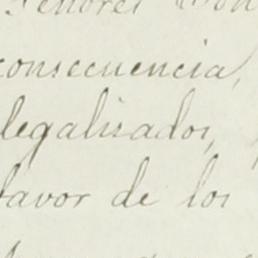 Señores Don
consecuencia,
legalizados,
favor de los